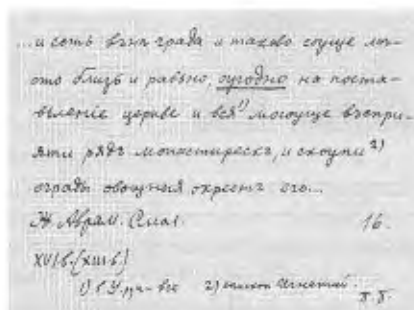 ...и есть вънъ града и таково сущее мѣ-
сто близь и равьно, оугодно на поста-
вьленіе церкве и вся¹⁾ могоуще въспри-
яти рядъ монастирескъ, и скоупи²⁾
ограды овощныя окрестъ его...
Ж. Аврам. Смол. 16.
XVI в. (XIII в.)
1) в У. рук- все 2) епископ Игнатий.